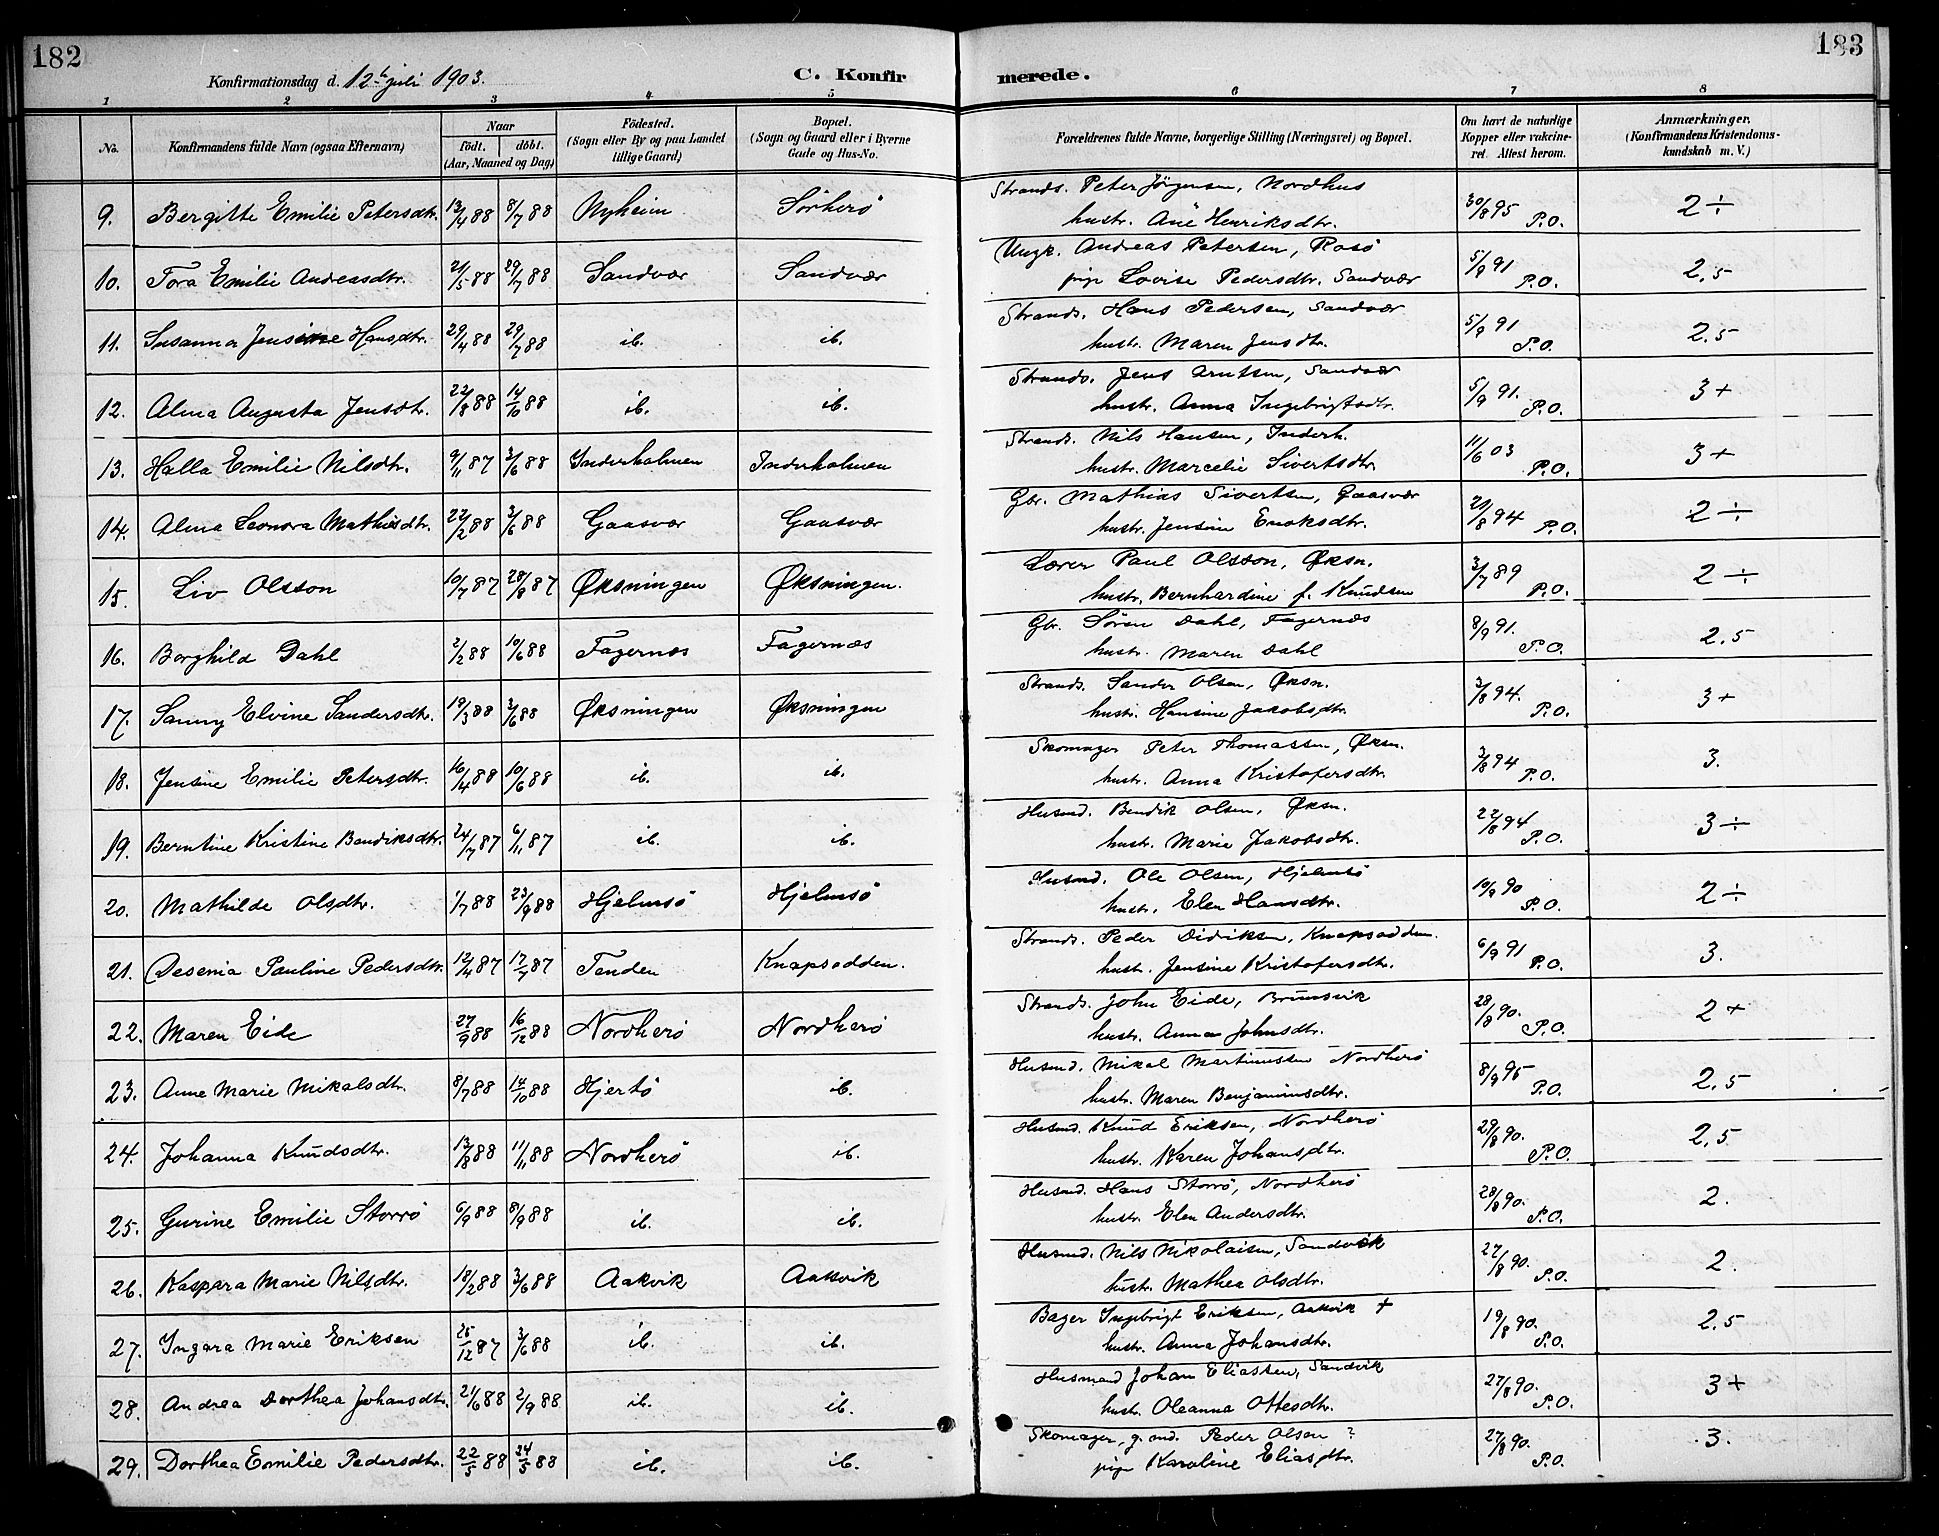 182
183
Konfirmationsdag d. 12te juli 1903.
C. Konfirmerede.
1 2 3 4 5 6 7 8
No. Konfirmandens fulde Navn (ogsaa Efternavn) Naar født. døbt. (Aar, Maaned og Dag) Fødested. (Sogn eller By og paa Landet tillige Gaard) Bopæl. (Sogn og Gaard eller i Byerne Gade og Hus-No. Forældrenes fulde Navne, borgerlige Stilling (Næringsvei) og Bopæl. Om havt de naturlige Kopper eller vakcineret. Attest herom. Anmærkninger. (Konfirmandens Kristendomskundskab m. V.)
9. Bergitte Emilie Petersdtr. 13/4 88 8/7 88 Nyheim Sørherø Strands. Peter Jörgensen, Nordhus 30/8 95 P.O. 2÷
hustr. Ane Henriksdtr.
10. Tora Emilie Andreasdtr. 21/5 88 29/7 88 Sandvær Sandvær Ungk. Andreas Petersen, Rosö 5/9 91 P.O. 2,5
pige Lovise Pedersdtr. Sandvær
11. Susanna Jensine Hansdtr. 29/4 88 29/7 88 ib. ib. Strands. Hans Pedersen, Sandvær 5/9 91 P.O. 2.5
hustr. Maren Jensdtr.
12. Alma Augusta Jensdtr. 22/8 88 14/10 88 ib. ib. Strands. Jens Arntsen, Sandvær 5/9 91. P.O. 3+
hustr. Anna Ingebrigtsdtr.
13. Halla Emilie Nilsdtr. 9/11 87 3/6 88 Inderholmen Inderholmen Strands. Nils Hansen, Inderh. 11/6 03 P.O. 3+
hustr. Marcelie Sivertsdtr.
14. Alma Leonora Mathisdtr. 22/2 88 3/6 88 Gaasvær Gaasvær Gbr. Mathias Sivertsen, Gaasvær 21/8 94 P.O. 2÷
hustr. Jensine Enoksdtr.
15. Liv Olsson 10/7 87 28/8 87 Øksningen Øksningen. Lærer Paul Olsson, Øksn. 3/7 89 P.O. 2÷
hustr. Bernhardine f. Knudsen
16. Borghild Dahl 2/2 88 10/6 88 Fagernæs Fagernæs Gbr. Sören Dahl, Fagernæs 8/9 91. P.O. 2,5
hustr. Maren Dahl
17. Sanny Elvine Sandersdtr. 19/3 88 3/6 88 Øksningen Øksningen Strands. Sander Olsen, Øksn. 3/8 94. P.O. 3+
hustr. Hansine Jakobsdtr.
18. Jensine Emilie Petersdtr. 16/4 88 10/6 88 ib. ib. Skomager Peter Thomassen, Øksn. 3/8 94 P.O. 3.
hustr. Anna Kristofersdtr.
19. Berntine Kristine Bendiksdtr. 24/7 87 6/11 87 ib. ib. Husmd. Bendik Olsen, Øksn. 22/8 94 P.O. 3÷
hustr. Marie Jakobsdtr.
20. Mathilde Olsdtr. 1/7 88 23/9 88 Hjelmsö Hjelmsö Husmd. Ole Olsen, Hjelmsö 10/9 90 P.O. 2÷
hustr. Elen Hansdtr.
21. Desenia Pauline Pedersdtr. 12/4 87 17/7 87 Tenden Knapsodden. Strands. Peder Didriksen, Knapsodden. 6/9 91 P.O. 3.
hustr. Jensine Kristofersdtr.
22. Maren Eide 27/9 88 16/12 88 Nordherö Nordherö Strands. John Eide, Brunsvik 28/8 90. P.O. 2+
hustr. Anna Johnsdtr.
23. Anne Marie Mikalsdtr. 8/7 88 14/10 88 Hjertö ib. Husmd. Mikal Martinussen Nordherö 8/9 95 P.O. 2,5
hustr. Maren Benjaminsdtr.
24. Johanna Knudsdtr. 13/8 88 11/11 88 Nordherö ib. Husmd. Knud Eriksen, Nordherö 29/8 90. P.O. 2,5
hustr. Karen Johansdtr.
25. Gurine Emilie Storrö 6/9 88 8/9 88 ib. ib. Husmd. Hans Storrö, Nordherö 28/8 90. P.O. 2.
hustr. Elen Andersdtr.
26. Kaspara Marie Nilsdtr. 18/2 88 3/6 88 Aakvik Aakvik Husmd. Nils Nikolaisen, Sandvik 27/8 90. P.O. 2.
hustr. Mathea Olsdtr.
27. Ingara Marie Eriksen 25/12 87 3/6 88 ib. ib. Bager Ingebrigt Eriksen, Aakvik + 19/8 90. P.O. 2.5
hustr. Anna Johansdtr.
28. Andrea Dorthea Johansdtr. 21/6 88 2/9 88 ib. ib. Husmand Johan Eliassen, Sandvik 27/8 90. P.O. 3+
hustr. Oleanna Ottesdtr.
29. Dorthea Emilie Pedersdtr. 22/5 88 24/5 88 ib. ib. Skomager, g. md. Peder Olsen ? 27/8 90. P.O. 3.
pige Karoline Eliasdtr.